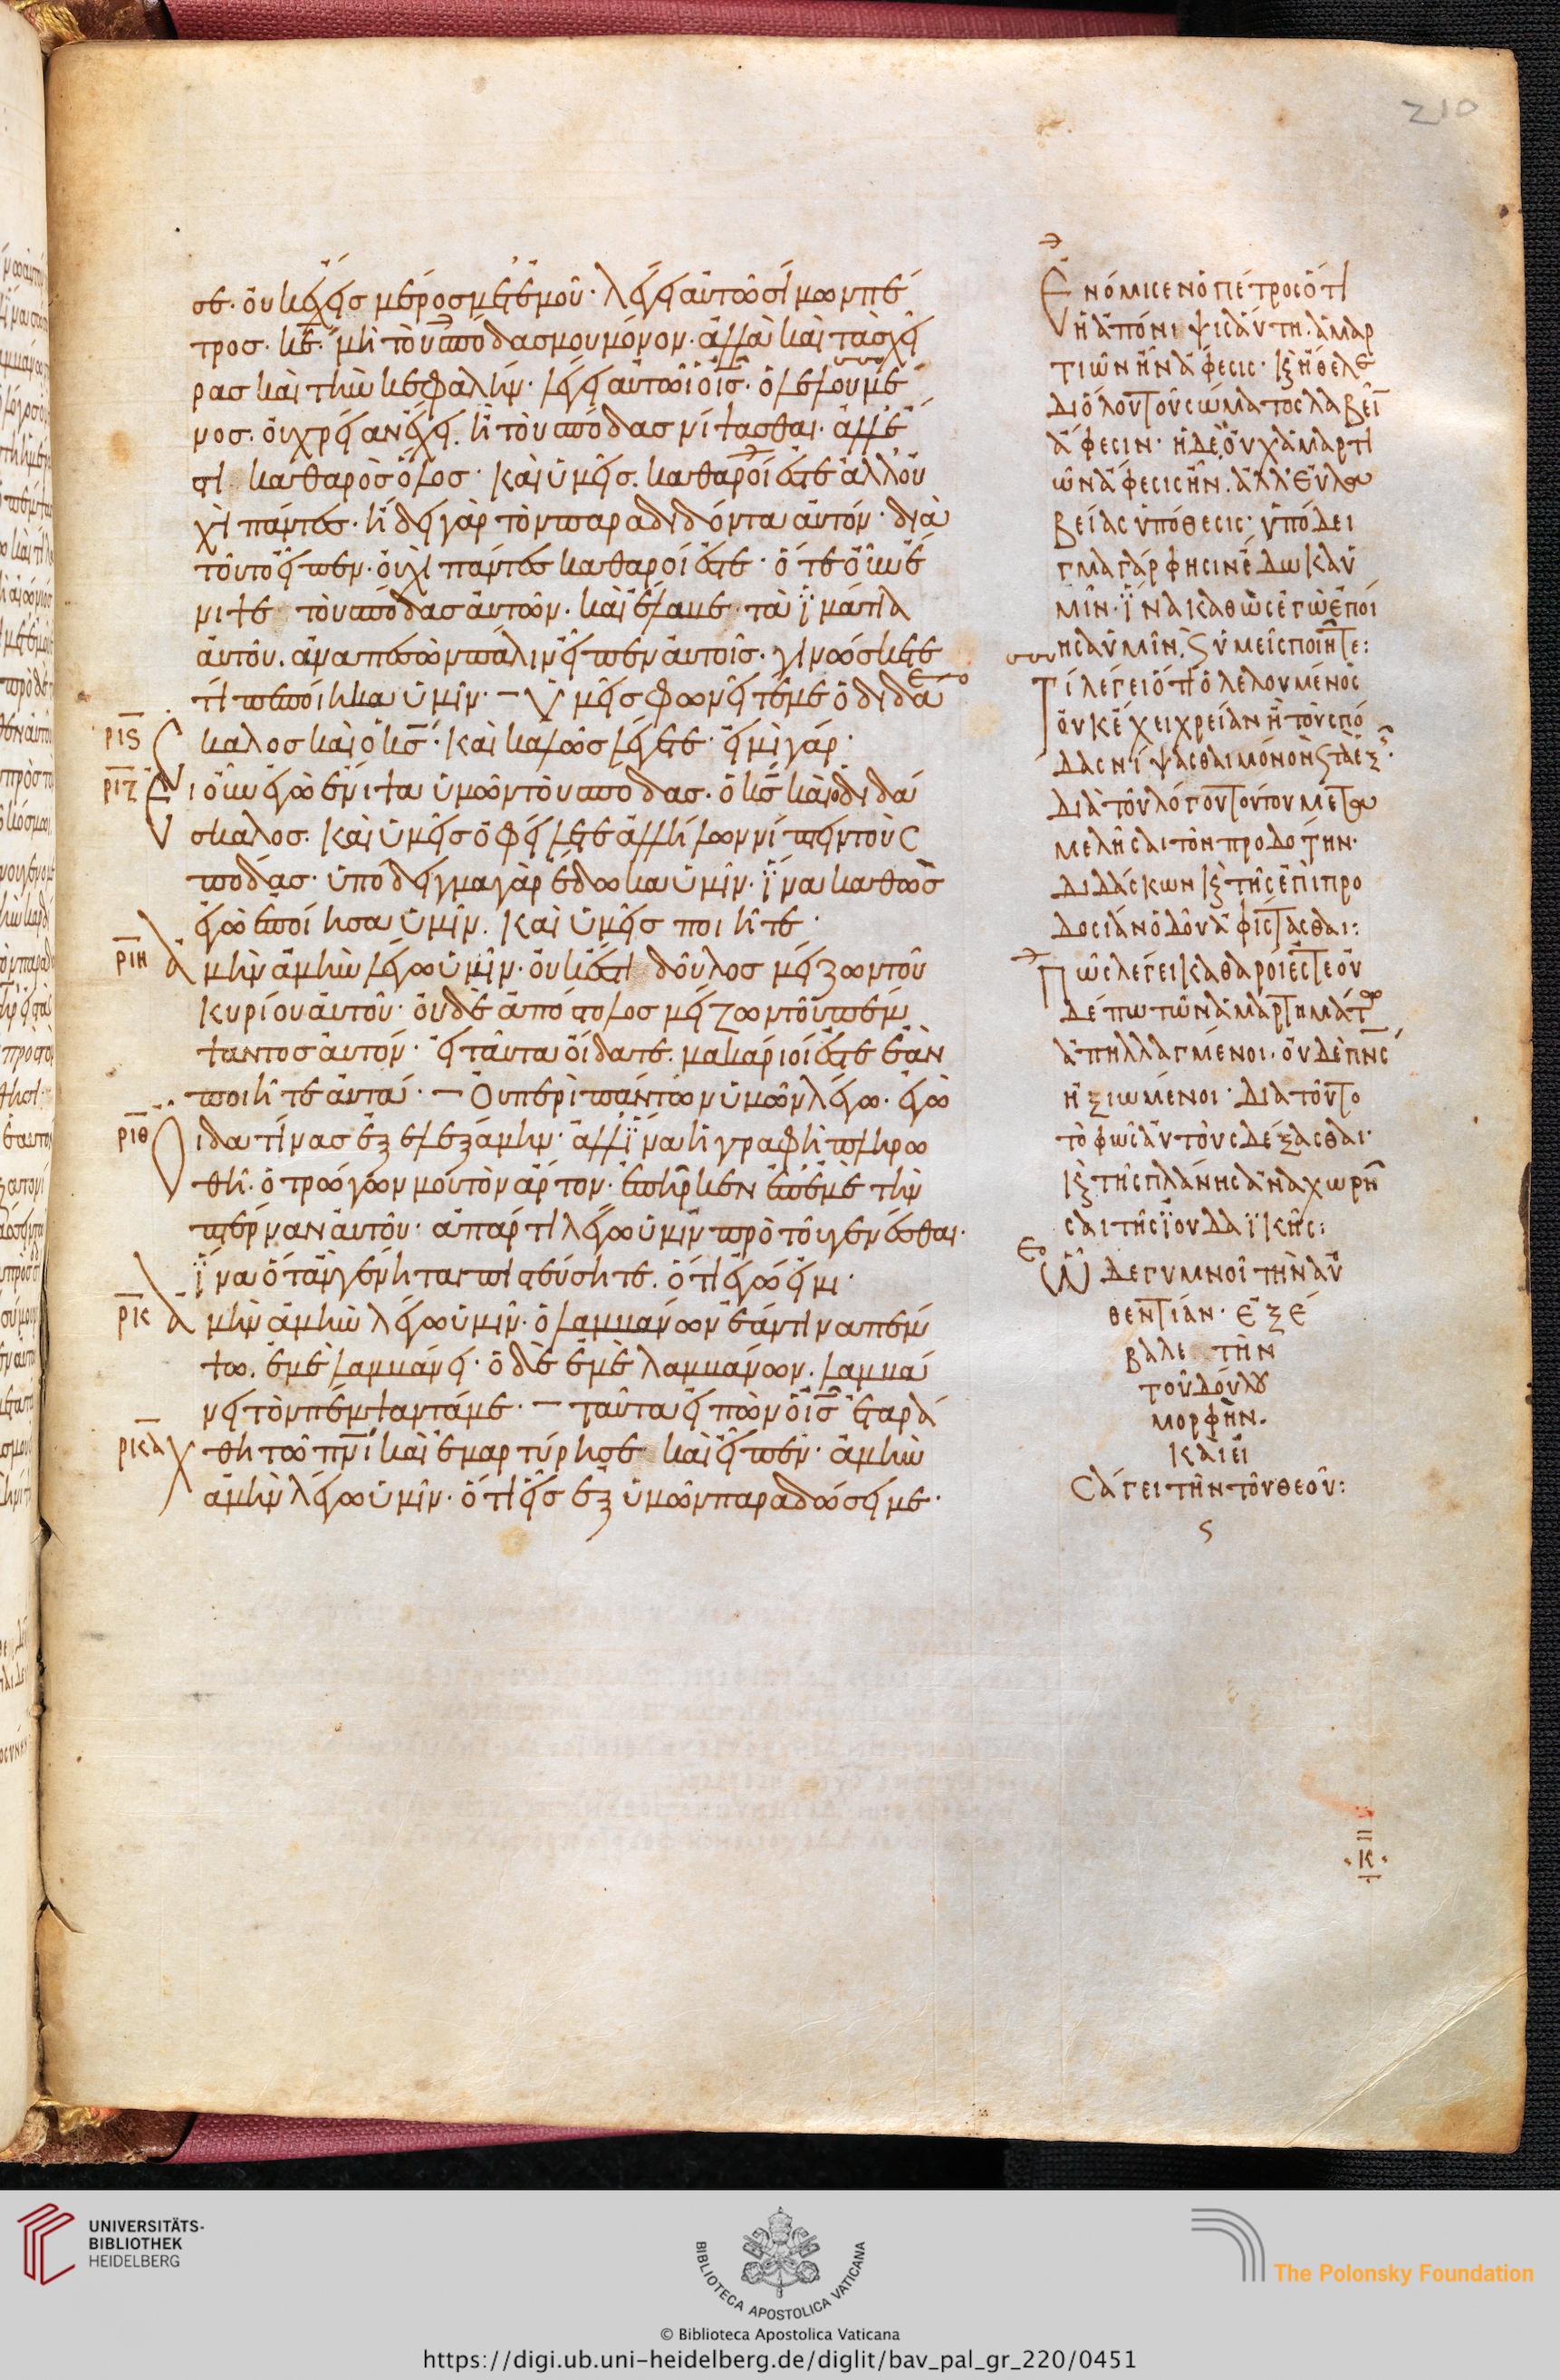 σε· οὐκ ἔχεις μέρος μετ' ἐμοῦ· λέγει αὐτῶ σίμων πέ
τρος· κ̅ε̅· μὴ τοὺς πόδας μου μόνον· ἀλλὰ καὶ τὰς χεῖ
ρας καὶ τὴν κεφαλήν· λέγει αὐτῶ ὁ ι̅ς̅· ὁ λελουμέ
νος· οὐ χρείαν ἔχει. ἢ τοὺς πόδας νίψασθαι· ἀλλ' ἔ
στι καθαρὸς ὅλος· καὶ ὑμεῖς. καθαροί ἐστε ἀλλ' οὐ
χὶ πάντες· ἤδει γὰρ τὸν παραδιδόντα αὐτόν· διὰ
τοῦτο εἶπεν· οὐχὶ πάντες καθαροί ἐστε· ὅτε οὖν ἔ
νιψε τοὺς πόδας αὐτῶν· καὶ ἔλαβε τὰ ἱμάτια
αὐτοῦ. ἀναπεσὼν πάλιν εἶπεν αὐτοῖς· γινώσκετε
τί πεποίηκα ὑμῖν· – Ὑμεῖς φωνεῖτέ με ὁ διδά
ρ̅ι̅ς̅ Σκαλος καὶ ὁ κ̅ς̅· καὶ καλῶς λέγετε· εἰμὶ γάρ·
ρ̅ι̅ζ̅ Εἰ οὖν ἐγὼ ἔνιψα ὑμῶν τοὺς πόδας· ὁ κ̅ς̅ καὶ ὁ διδά
σκαλος· καὶ ὑμεῖς ὀφείλετε ἀλλήλων νίπτειν τοὺς
πόδας· ὑπόδειγμα γὰρ ἔδωκα ὑμῖν· ἵνα καθὼς
ἐγὼ ἐποίησα ὑμῖν. καὶ ὑμεῖς ποιῆτε·
ρ̅ι̅η̅ ἀμὴν ἀμὴν λέγω ὑμῖν· οὐκ ἔστι δοῦλος μείζων τοῦ
κυρίου αὐτοῦ· οὐδὲ ἀπόστολος μείζων τοῦ πέμ
ψαντος αὐτόν· εἰ ταῦτα οἴδατε. μακάριοί ἐστε ἐὰν
ποιῆτε αὐτά· – Οὐ περὶ πάντων ὑμῶν λέγω. ἐγὼ
ρ̅ι̅θ̅ Οἶδα τίνας ἐξελεξάμην· ἀλλ' ἵνα ἡ γραφὴ πληρω
θῆ· ὁ τρώγων μου τὸν ἄρτον· ἐπῆρκεν ἐπ' ἐμὲ τὴν
πτέρναν αὐτοῦ· ἀπάρτι λέγω ὑμῖν πρὸ τοῦ γενέσθαι·
ἵνα ὅταν γένηται πιστεύσητε. ὅτι ἐγώ εἰμι·
ρ̅κ̅ ἀμὴν ἀμὴν λέγω ὑμῖν· ὁ λαμβάνων ἐάν τινα πέμ
ψω. ἐμὲ λαμβάνει· ὁ δὲ ἐμὲ λαμβάνων. λαμβά
νει τὸν πέμψαντά με· – ταῦτα εἰπὼν ὁ ι̅ς̅ ἐταρά
ρ̅κ̅α̅ χθη τῶ π̅ν̅ι̅ καὶ ἐμαρτύρησε καὶ εἶπεν· ἀμὴν
ἀμὴν λέγω ὑμῖν· ὅτι εἷς ἐξ ὑμῶν παραδώσει με·
210
Ἐνόμισεν ὁ πέτρος ὅτι
ἡ ἀπόνιψις αὕτη. ἁμαρ
τιῶν ἦν ἄφεσις· κ ἤθελε
δι' ὅλου τοῦ σώματος λαβεῖ
ἄφεσιν· ἡ δὲ, οὐχ ἁμαρτι
ῶν ἄφεσις ἦν. ἀλλ' εὐλα
βείας ὑπόθεσις· ὑπόδει
γμα γάρ φησιν ἔδωκα ὑ
μῖν· ἵνα καθὼς ἐγὼ ἐποί
ησα ὑμῖν, ϛ ὑμεῖς ποιῆτε:
Τί λέγει ὅτι ὁ λελουμένος
οὐκ ἔχει χρείαν ἢ τοὺς πό
δας νίψασθαι μόνον ϛ τὰ ἑξ·
διὰ τοῦ λόγου τούτου μετα
μελῆσαι τὸν προδότην·
διδάσκων κ τῆς ἐπὶ προ
δοσίαν ὁδοῦ ἀφίστασθαι:
Πῶς λέγει καθαροί ἐστε οὐ
δέπω τῶν ἁμαρτημάτων
ἀπηλλαγμένοι· οὐδὲ π̅ν̅ς̅
ἠξιωμένοι· διὰ τοῦτο
τὸ φῶς αὐτοὺς δέξασθαι·
κ τῆς πλάνης ἀναχωρῆ
σαι τῆς ἰουδαϊκῆς:
Ὧδε γυμνοῖ τὴν αὐ
θεντίαν· ἐξέ
βαλε τὴν
τοῦ δούλου
μορφὴν.
καὶ εἰ
σάγει τὴν τοῦ θεοῦ:
ϛ
·κ·
UNIVERSITÄTS-
BIBLIOTHEK
HEIDELBERG
BIBLIOTECA APOSTOLICA VATICANA
The Polonsky Foundation
© Biblioteca Apostolica Vaticana
https://digi.ub.uni-heidelberg.de/diglit/bav_pal_gr_220/0451